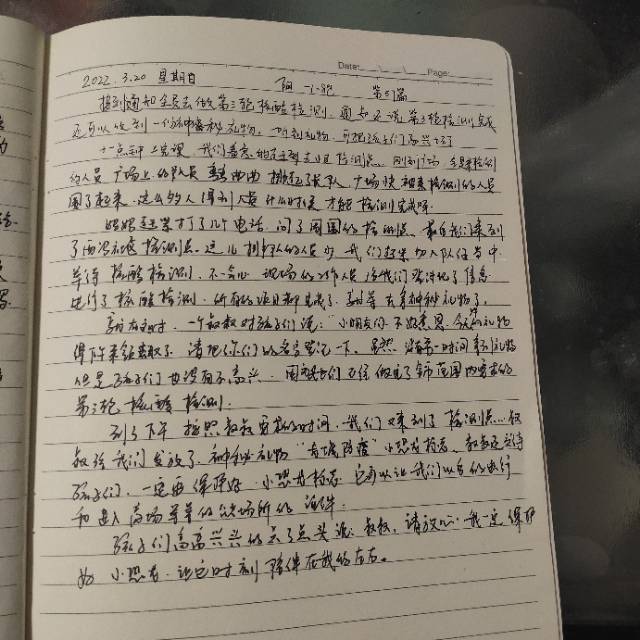 Date: Page:
2022.3.20 星期日 阴 小雨 第51篇
接到通知全员去做第三轮核酸检测,通知还说第三轮检测完成
还可以收到一份神秘礼物,听到礼物,可把孩子们高兴
十一点钟上完课,我们 检测点,刚到广场 来检测
的人员 广场上的队伍 弯弯曲曲 长队,广场快被来检测的人员
围了起来,这么多的人 什么时候才能检测完成呀。
妈妈赶紧打了几个电话,问了周围的检测点,最后我们来到
了 检测点,这儿排队的人员少,我们赶紧加入队伍当中
等待核酸检测,不一会儿 现场的工作人员给我们登记了信息
进行了核酸检测,所有的项目都完成了,就等去拿神秘礼物了。
一个叔叔对孩子们说:"小朋友们 不好意思,今天的礼物
得下午来领取了,请把你们的名字登记一下,虽然没有第一时间拿到礼物
但是孩子们也没有不高兴,因为我们已经做完了全市范围内要求的
第三轮核酸检测。
到了下午 按照叔叔交待的时间,我们又来到了检测点,
叔给我们发放了神秘礼物 "有 防疫"小恐龙 ,叔叔还交待
孩子们,一定要保护好,小恐龙 ,它可以让我们以后的出行
和进入商场等等公共场所的证件。
孩子们高高兴兴的点了点头说:叔叔,请放心,我一定保护
好小恐龙,让它时刻陪伴在我的左右。